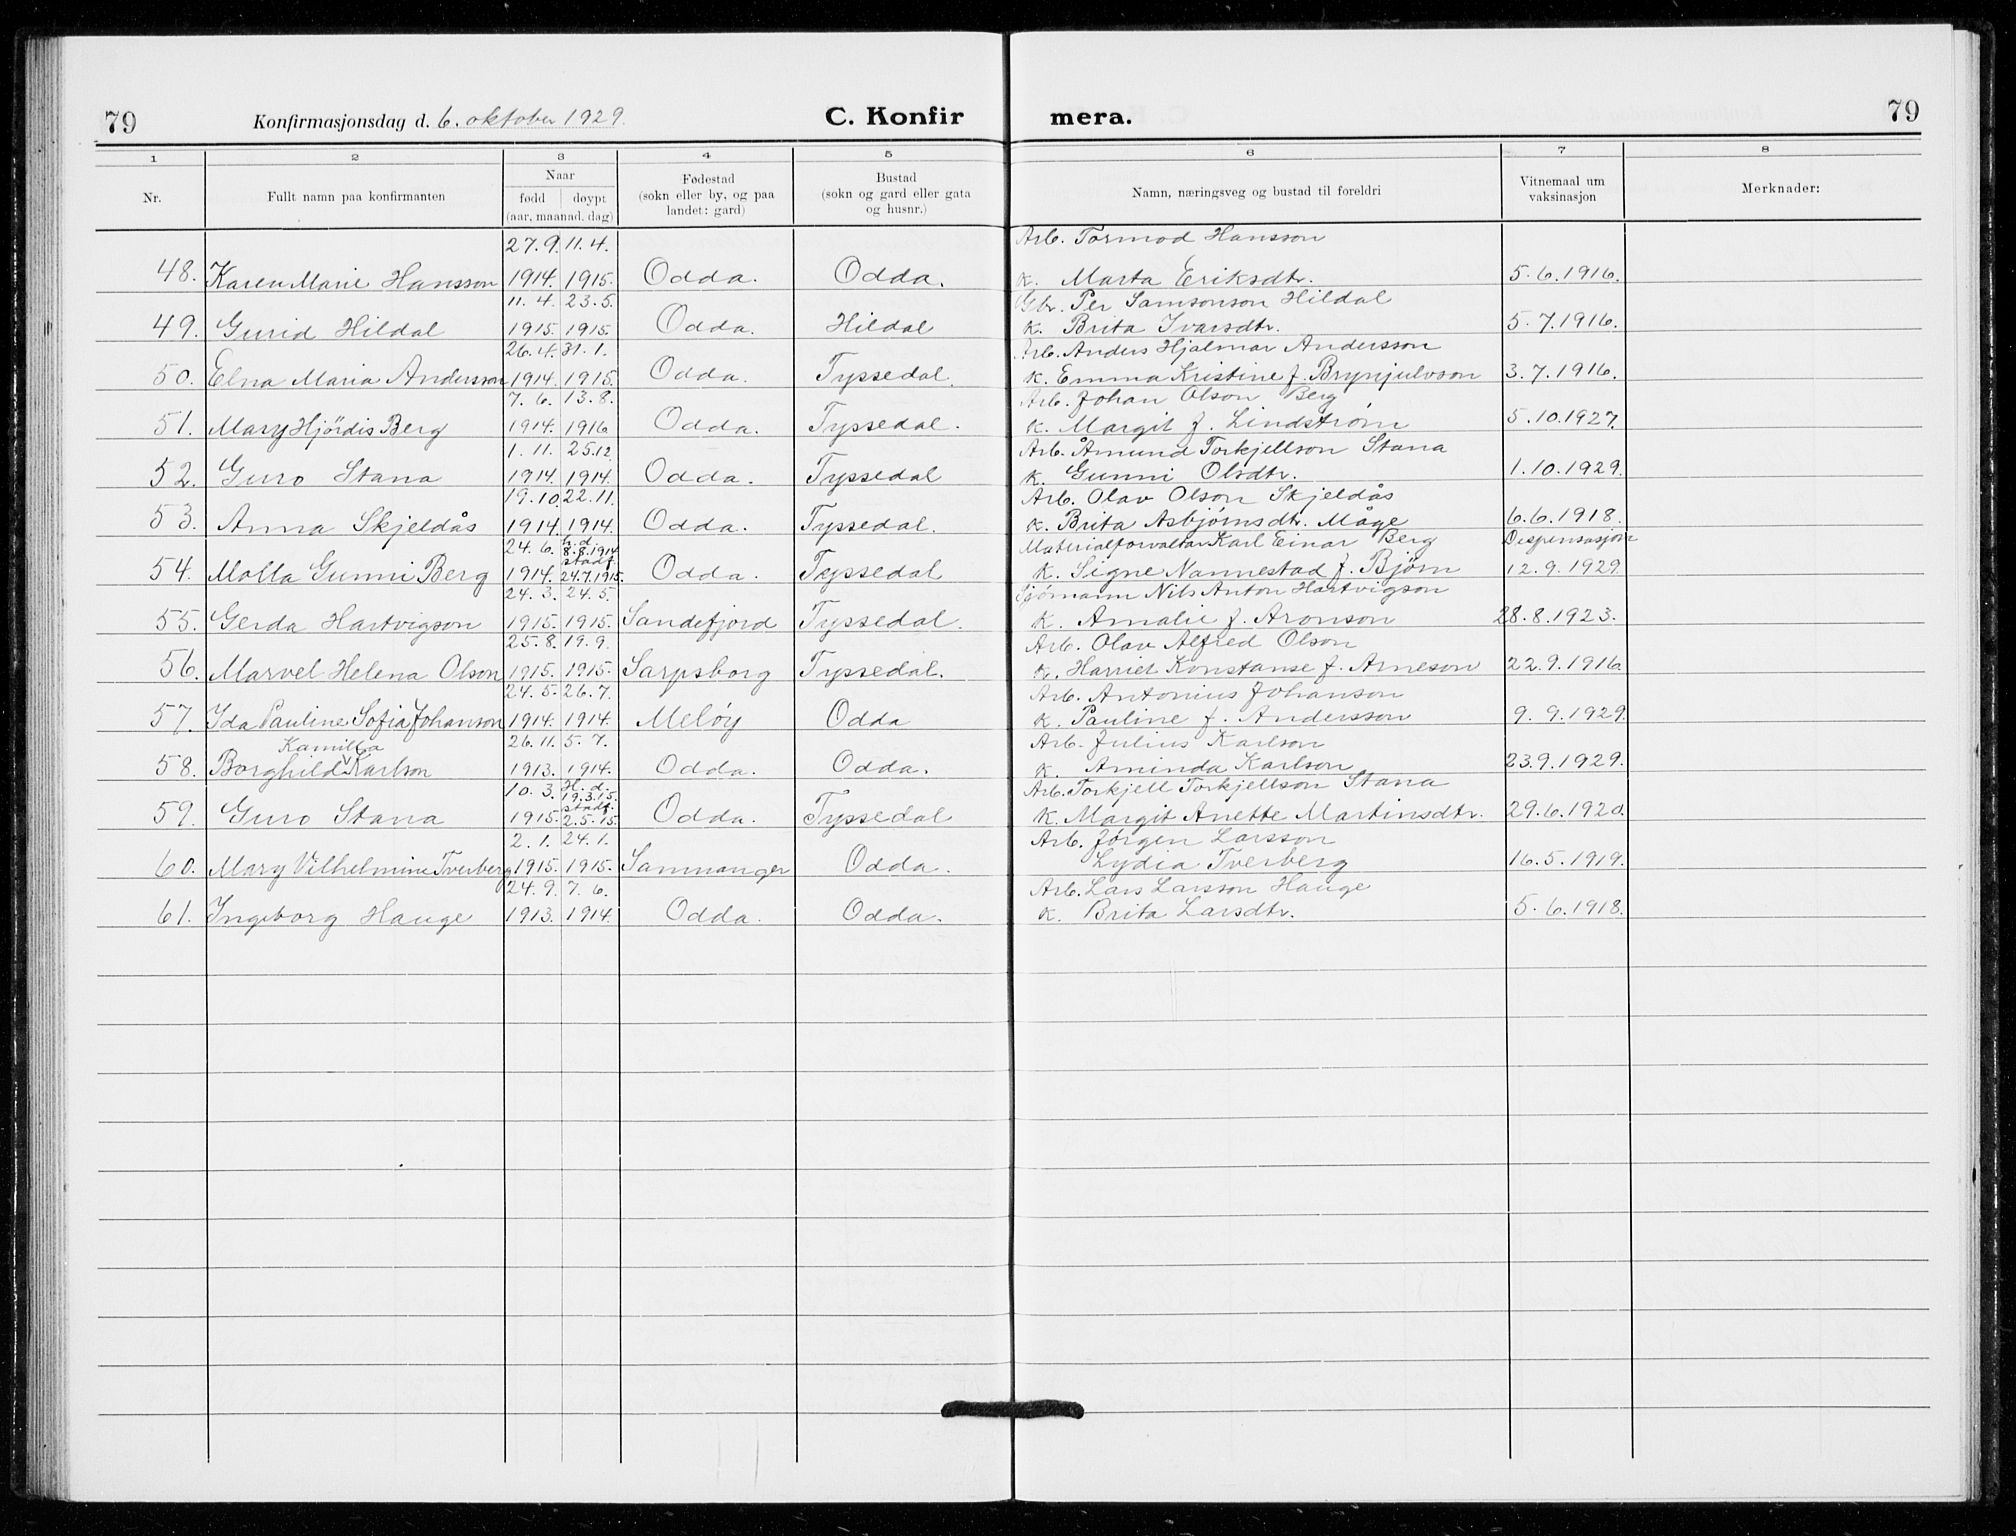 79 Konfirmasjonsdag d. 6. oktober 1929. C. Konfirmera. 79
1 2 3 4 5 6 7 8
Nr. Fullt namn paa konfirmanten Naar fødd døypt (aar, maanad, dag) Fødestad (sokn eller by, og paa landet: gard) Bustad (sokn og gard eller gata og husnr.) Namn, næringsveg og bustad til foreldri Vitnemaal um vaksinasjon Merknader:
27.9. 11.4. Arb. Tormod Hansson
48. Karen Marie Hansson 1914. 1915. Odda. Odda. K. Marta Eriksdtr. 5.6.1916.
11.4. 23.5. Gbr. Per Samsonson Hildal
49. Gurid Hildal 1915. 1915. Odda. Hildal K. Brita Ivarsdtr. 5.7.1916.
26.4. 31.1. Arb. Anders Hjalmar Andersson
50. Elna Maria Andersson 1914. 1915. Odda. Tyssedal. K. Emma Kristine f. Brynjulvson 3.7.1916.
7.6. 13.8. Arb. Johan Olson Berg
51. Mary Hjørdis Berg 1914. 1916 Odda. Tyssedal. K. Margit f. Lindstrøm 5.10.1927.
1.11. 25.12. Arb. Åmund Torkjellson Stana
52. Guro Stana 1914. 1914. Odda. Tyssedal K. Gunni Olsdtr. 1.10.1929.
19.10. 22.11. Arb. Olav Olson Skjeldås
53. Anna Skjeldås 1914. 1914. Odda. Tyssedal. K. Brita Asbjørnsdtr. Måge 6.6.1918.
24.6. h.d. 8.8.1914 stadf. Materialforvaltar Karl Einar Berg Dispensasjon
54. Molla Gunni Berg 1914. 24.7.1915. Odda. Tyssedal K. Signe Nannestad f. Bjørn 12.9.1929.
24.3. 24.5. Sjømann Nils Anton Hartvigson
55. Gerda Hartvigson 1915. 1915. Sandefjord Tyssedal. K. Amalie f. Aronson 28.8.1923.
25.8. 19.9. Arb. Olav Alfred Olson
56. Marvel Helena Olson 1915. 1915. Sarpsborg Tyssedal. K. Harriet Konstanse f. Arneson 22.9.1916.
24.5. 26.7. Arb. Antonius Johanson
57. Ida Pauline Sofia Johanson 1914. 1914. Meløy Odda K. Pauline f. Andersson 9.9.1929.
Kamilla 26.11. 5.7. Arb. Julius Karlson
58. Borghild Karlson 1913. 1914. Odda. Odda. K. Aminda Karlson 23.9.1929.
10.3. H.d. 19.3.15. stadf. Arb. Torkjell Torkjellson Stana
59. Guro Stana 1915. 2.5.15. Odda. Tyssedal K. Margit Anette Martinsdtr. 29.6.1920.
2.1. 24.1. Arb. Jørgen Larsson
60. Mary Vilhelmine Tverberg 1915. 1915. Samnanger Odda. Lydia Tverberg 16.5.1919.
24.9. 7.6. Arb. Lars Larsson Hauge
61. Ingeborg Hauge 1913. 1914. Odda. Odda. K. Brita Larsdtr. 5.6.1918.